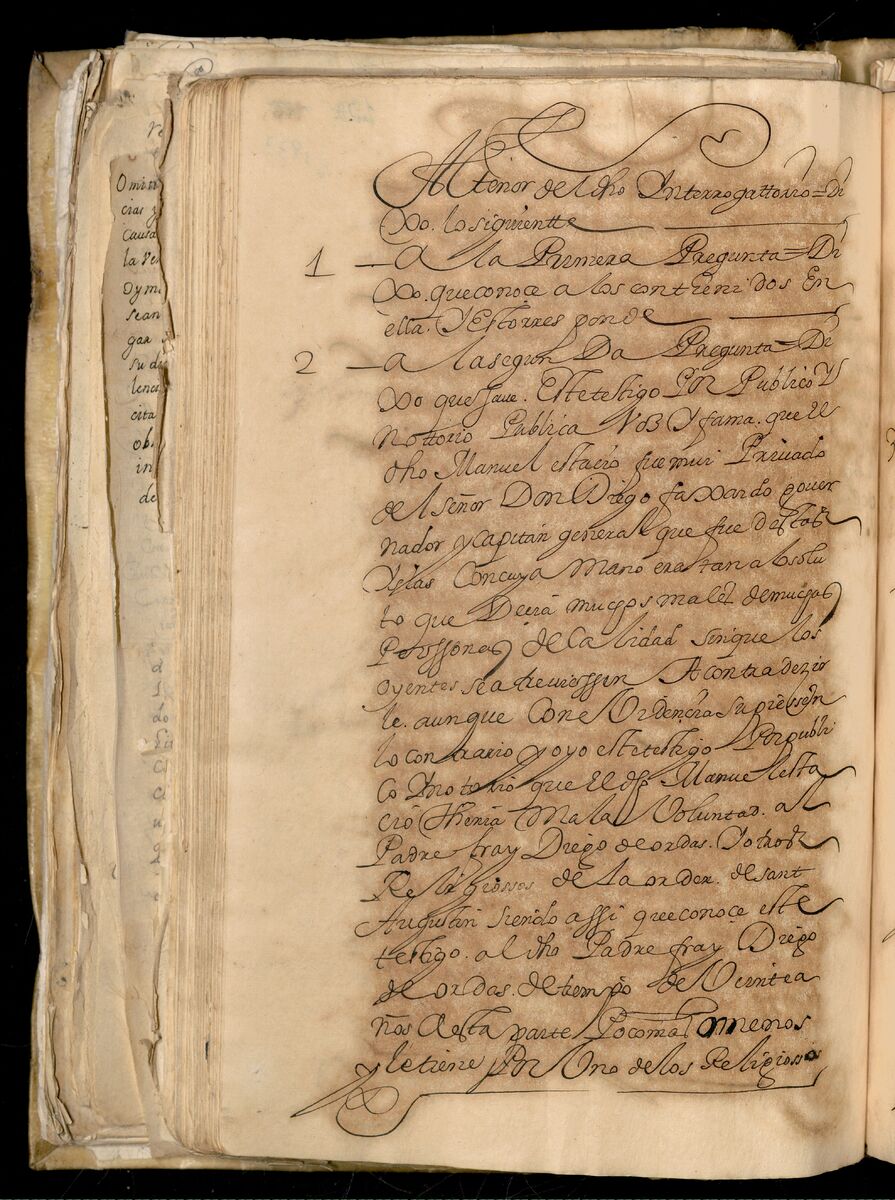 Al tenor del dho Ynterrogattorio = Di
xo. lo siguientte
1 — A la Primera Pregunta = Di
xo. que conoce a los conttenidos En
ella. Y Esto rresponde
2 — a la segunda Pregunta = Di
xo que save. Este testigo Por Publico Y
nottorio Publica Vos Y fama. que El
dho Manuel estacio fue mui Privado
del señor Don Diego faxardo gover
nador y capitan general que fue destas
Yslas Con cuya mano era tan absolu
to que Decia muchos males de muchas
Perssonas de Calidad sin que los
oyentes se atreviessen A contradezir
le. aunque Con Evidencia supiessen
lo contrario y oyo este testigo Por publi
co Y notorio que El dho Manuel esta
cio thenia Mala Voluntad. al
Padre fray Diego de ordas. Y otros
Religiossos de la orden. de sant
Augustin siendo assi que conoce este
testigo. al dho Padre fray Diego
de ordas. de tiempo de Veinte a
ños a esta parte Poco mas o menos
y le tiene Por Uno de los Religiossos
Omini
cias y
Causa
la Ve
dymi
sean
gar
su di
lenc
cita
ob
in
de